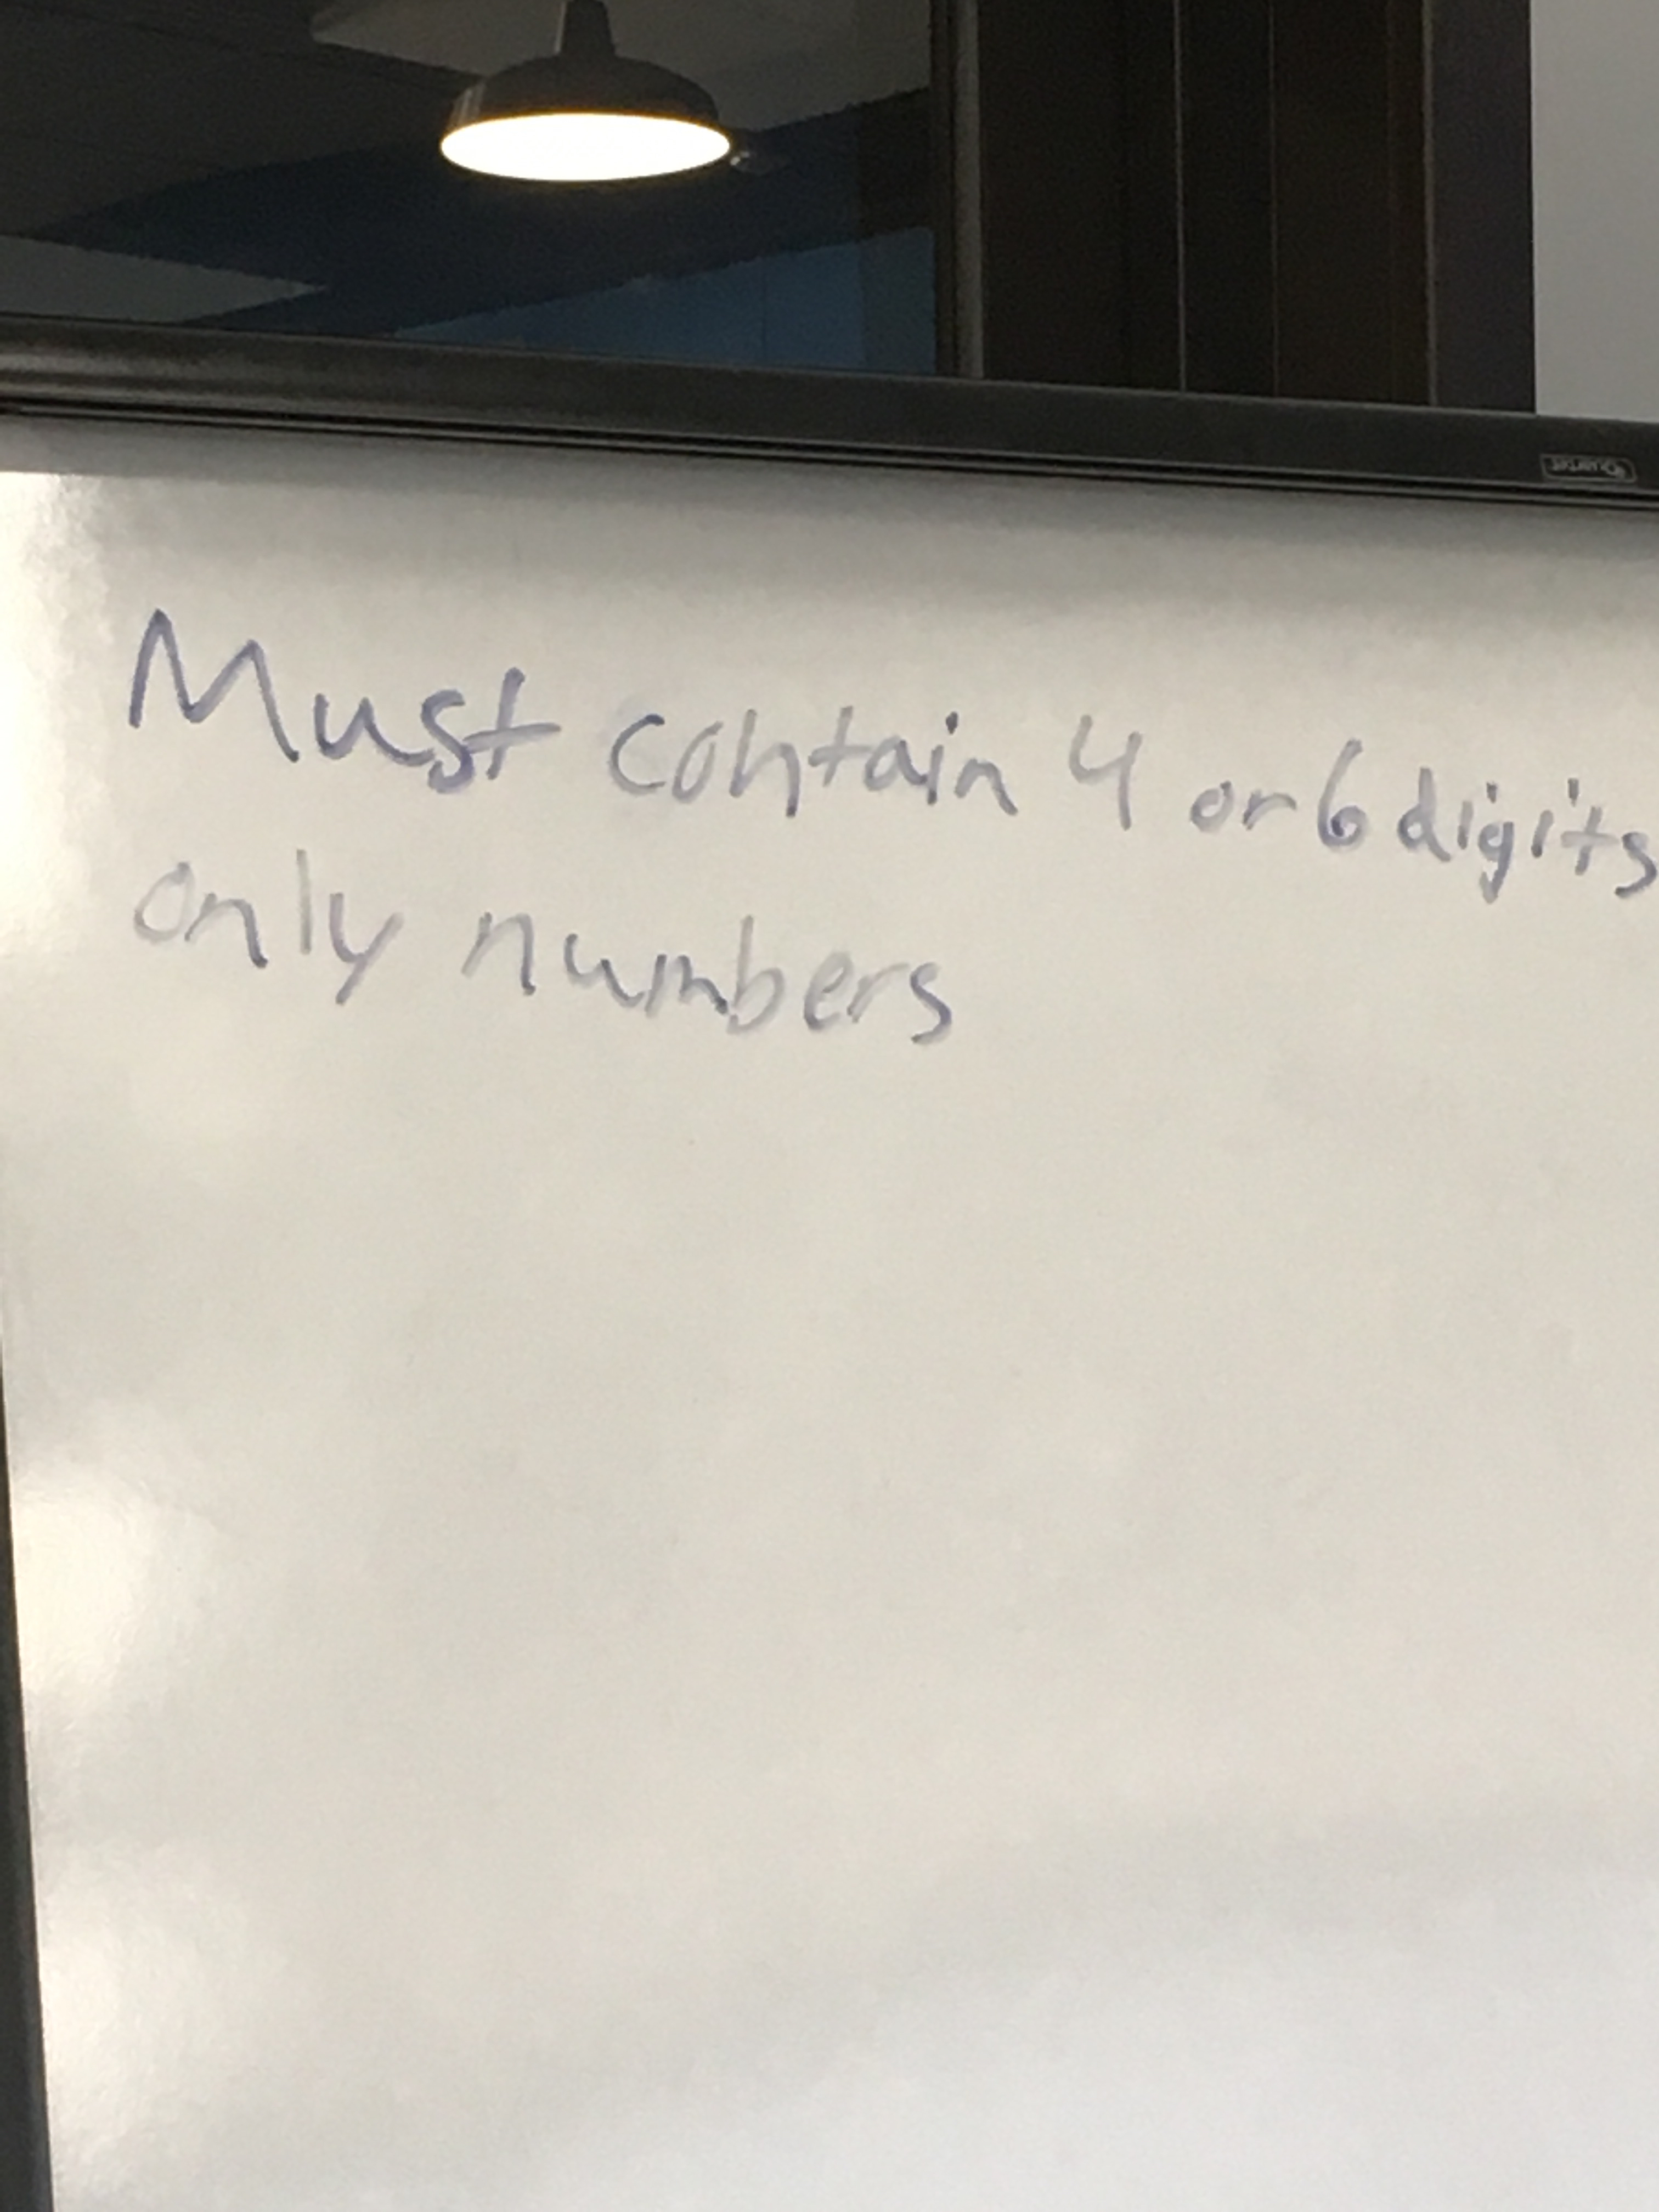 Must contain 4 or 6 digits
only numbers